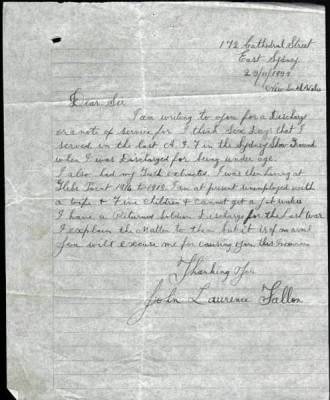 172 Cathedral Street
East Sydney
29/11/1939
New South Wales
Dear Sir
I am writing to you for a Discharge
or a note of service for I think Six Days that I
served in the last A.I.F in the Sydney Show Ground
when I was Discharged for being under age.
I also had my Teeth extracted. I was then living at
Glebe Point 1916 to 1918. I am at present unemployed with
a wife & Five Children & cannot get a job unless
I have a Returned Soldiers Discharge for the last War
I explain the Matter to them but it is of no avail
You will excuse me for causing you this
Thanking You
John Laurence Fallon